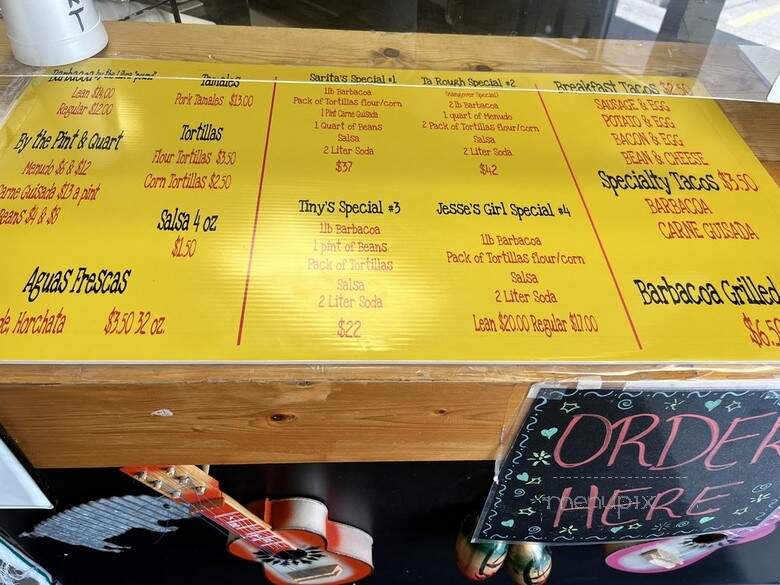 Barbacoa by the Libra "pound"
Lean $14.00
Regular $12.00
By the Pint & Quart
Menudo $6 & $12
Carne Guisada $13 a pint
Beans $4 & $8
Aguas Frescas
Horchata $3.50 32 oz.
Tamales
Pork Tamales $13.00
Tortillas
Flour Tortillas $3.50
Corn Tortillas $2.50
Salsa 4 oz
$1.50
Sarita's Special #1
1lb Barbacoa
Pack of Tortillas flour/corn
1 Pint Carne Guisada
1 Quart of Beans
Salsa
2 Liter Soda
$37
Tiny's Special #3
1lb Barbacoa
1 pint of Beans
Pack of Tortillas
Salsa
2 Liter Soda
$22
Ta Rough Special #2
(Hangover Special)
2 lb Barbacoa
1 quart of Menudo
2 Pack of Tortillas flour/corn
Salsa
2 Liter Soda
$42
Jesse's Girl Special #4
1lb Barbacoa
Pack of Tortillas flour/corn
Salsa
2 Liter Soda
Lean $20.00 Regular $17.00
Breakfast Tacos $2.50
SAUSAGE & EGG
POTATO & EGG
BACON & EGG
BEAN & CHEESE
Specialty Tacos $3.50
BARBACOA
CARNE GUISADA
Barbacoa Grilled
$6.5
ORDER
HERE
menupix